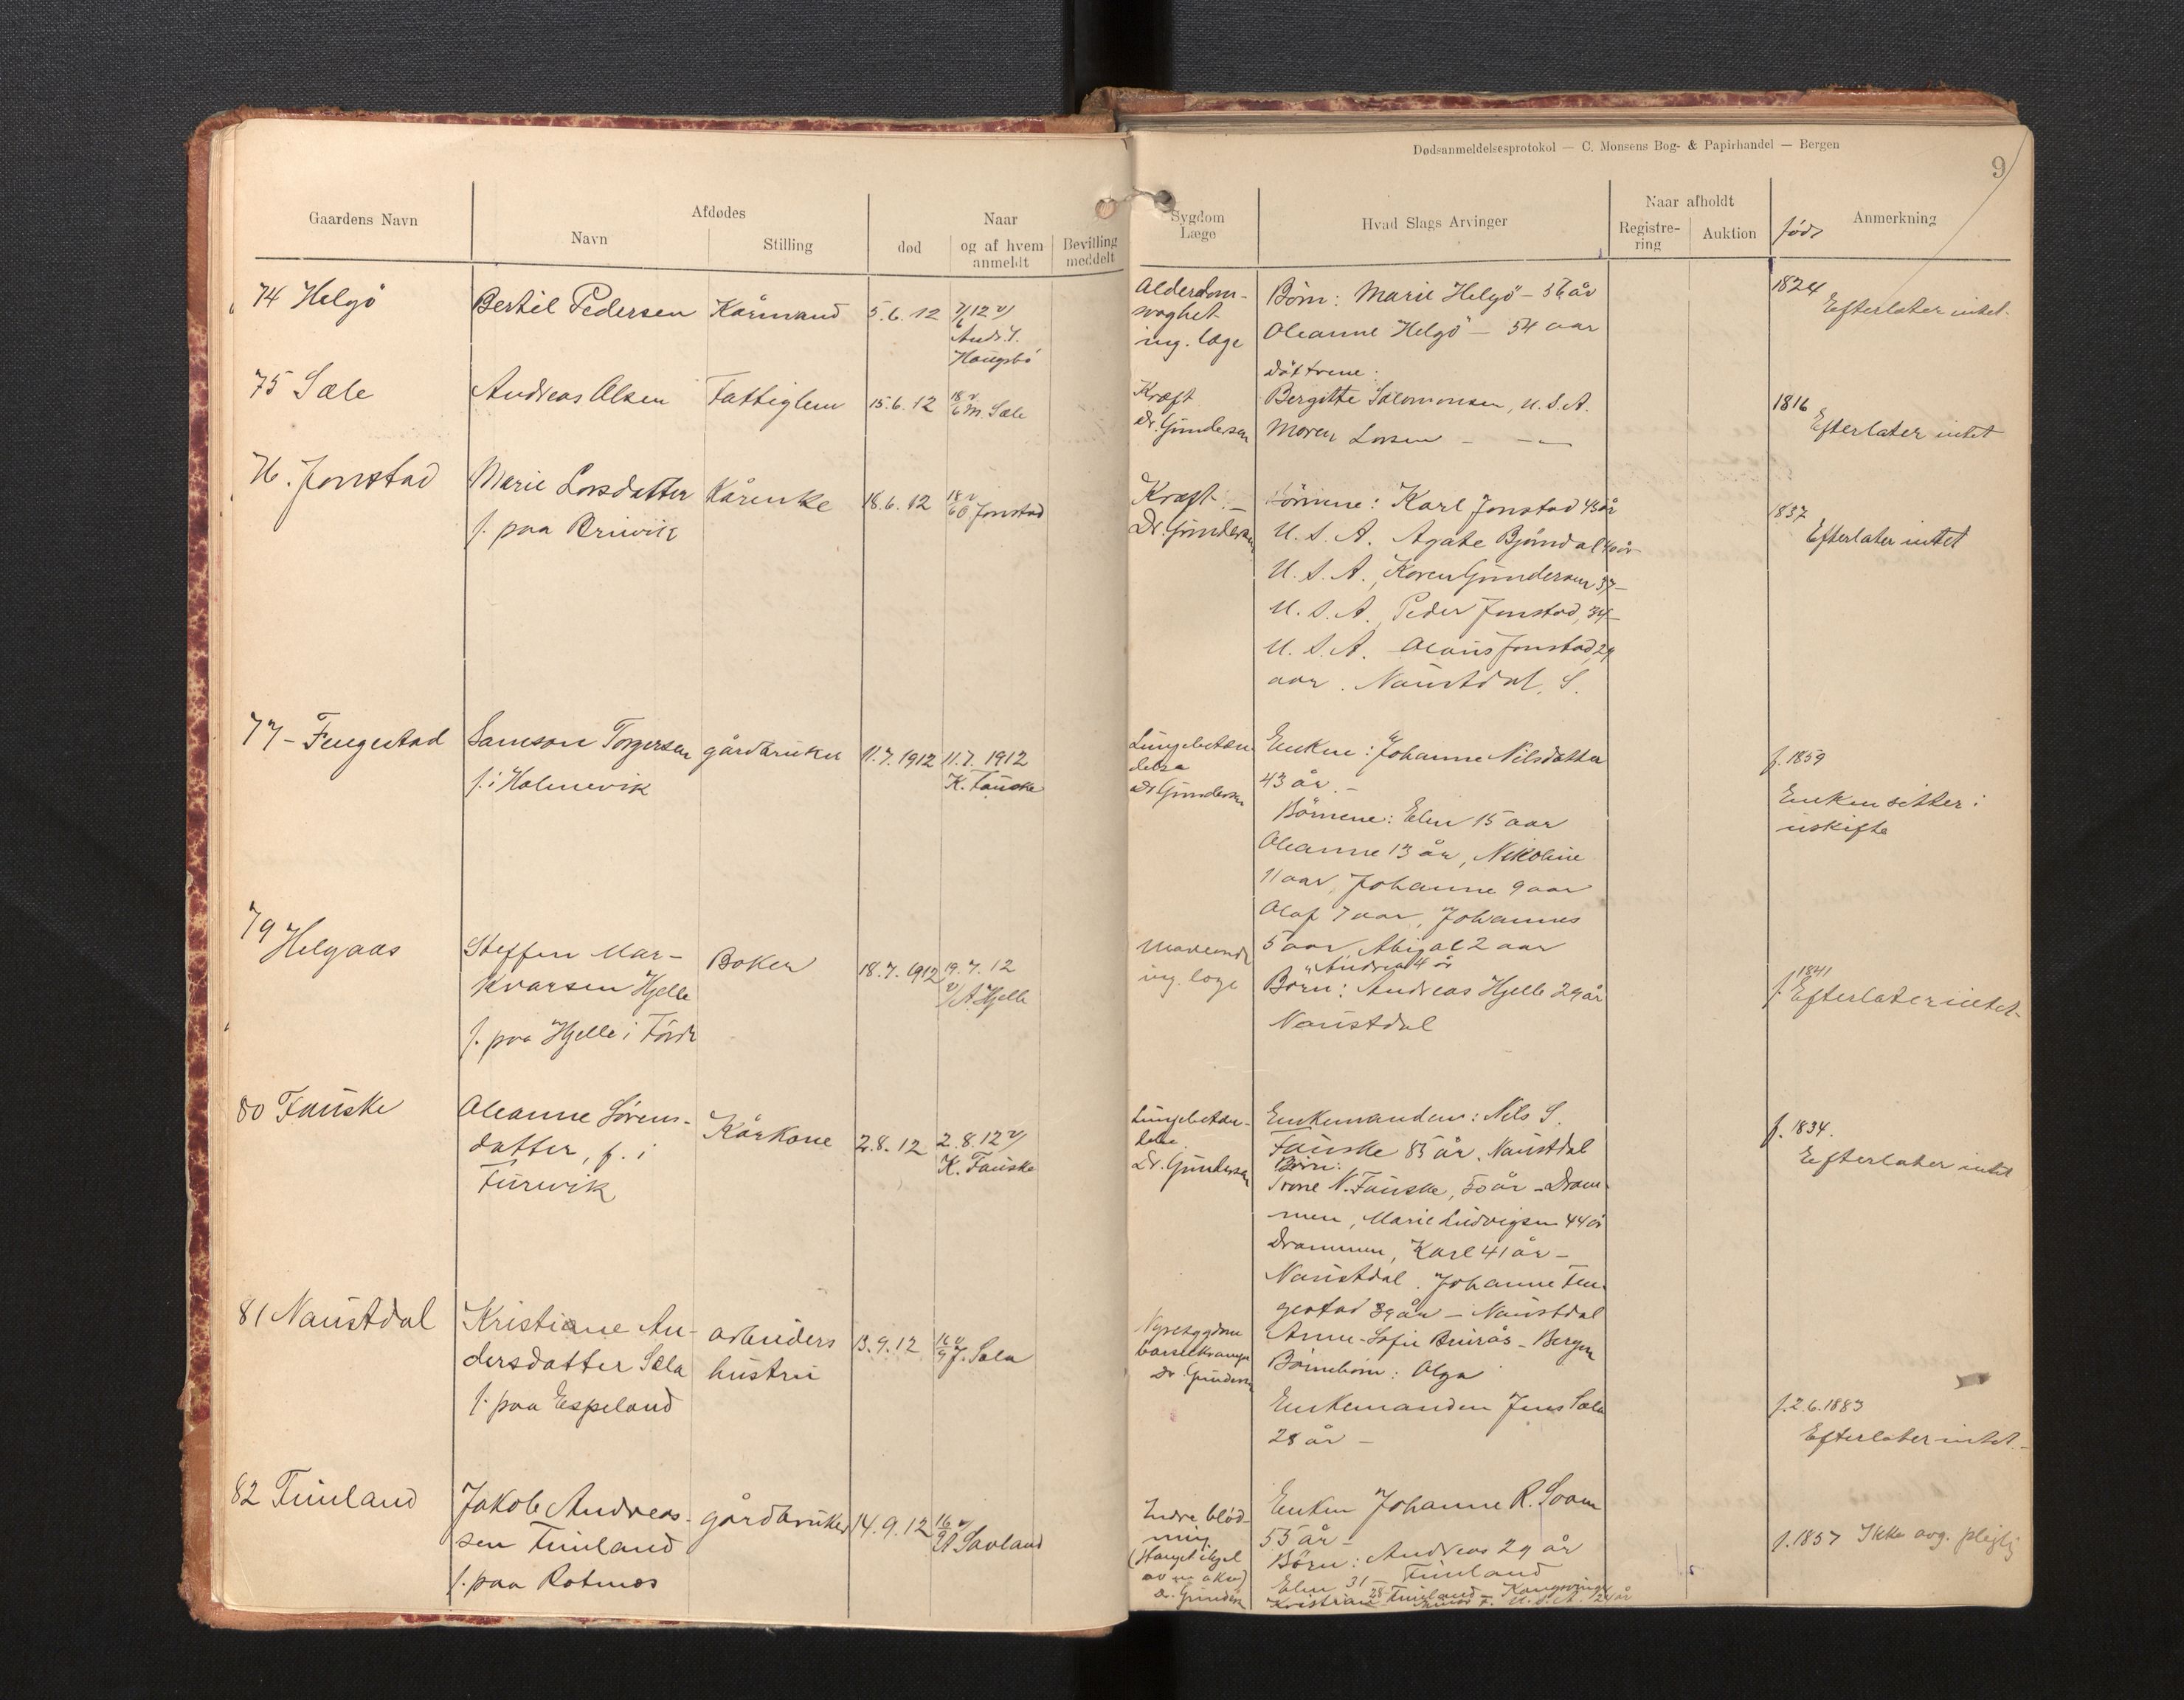 Dødsanmeldelsesprotokol — C. Monsens Bog- & Papirhandel — Bergen
9
Gaardens Navn
Afdødes
Navn
Stilling
død
Naar
og af hvem
anmeldt
Bevilling
meddelt
Sygdom
Læge
Hvad Slags Arvinger
Naar afholdt
Registre-
ring
Auktion
født
Anmerkning
74 Helgö
Bertil Pedersen
Kårmand
5.6.12
7/6 12 v/
Andr. S.
Haugsbö
Alderdom-
svaghet
ing. læge
Börn: Marie Helgö – 56 år
Oleanne Helgö – 54 aar
1824
Efterlater intet.
75 Sæle
Andreas Olsen
Fattiglem
15.6.12
18/6 v
M. Sæle
Kræft
Dr. Gundersen
Döttrene:
Bergitte Salomonsen, U.S.A.
Maren Larsen – – –
1816
Efterlater intet
76. Jonstad
Marie Larsdatter
f. paa
Kårenke
18.6.12
18/6 v
O Jonstad
Kræft. –
Dr. Gundersen
Börnene: Karl Jonstad 43 år
U.S.A. Agate Bjöndal 40 år
U.S.A., Karen Gundersen 37 –
U.S.A., Peder Jonstad, 34 –
U.S.A. Olaus Jonstad 29
aar. Naustdal, S.
1837
Efterlater intet
77 – Fengestad
Samson Torgersen
f. i Holmevik
gårdbruker
11.7.1912
11.7.1912
K. Fauske
Lungebetæn
delse
Dr Gundersen
Enken: Johanne Nilsdatter
43 år. –
Börnene: Elen 15 aar
Oleanne 13 år, Nikoline
11 aar, Johanne 9 aar
Olaf 7 aar, Johannes
5 aar Abigal 2 aar
Andrea 4 år
f. 1859
Enken sitter i
uskifte
79 Helgaas
Steffen Mar-
kvarsen Hjelle
f. paa Hjelle i Förde
Baker
18.7.1912
19.7.12
v/ A. Hjelle
ing. læge
Börn: Andreas Hjelle 29 år
Naustdal
1841
f. Efterlater intet –
80 Fauske
Oleanne Sörens-
datter, f. i
Furevik
Kårkone
2.8.12
2.8.12 v/
K. Fauske
Lungebetæn-
delse.
Dr. Gundersen
Enkemanden: Nils S.
Fauske 85 år. Naustdal
Börn:
N. Fauske, 50 år – Dram-
men, Marie Ludvigsen 44 år
Drammen, Karl 41 år –
Naustdal. Johanne Fen-
gestad 39 år – Naustdal
Anne-Sofie – Bergen
f. 1834.
Efterlater intet
81 Naustdal
Kristiane An-
dersdatter Sæla
f. paa Espeland
arbeiders
hustru
13.9.12
16/9 v
J. Sæla
Nyresygdom
barselkrampe
Dr. Gundersen
Börnebörn: Olga
Enkemanden Jens Sæla
28 år –
f. 2.6.1883
Efterlater intet –
82 Fimland
Jakob Andreas-
sen Fimland
f. paa Rotnæs
gårdbruker
14.9.12
16/9 v/
A Savland
Indre blöd-
ning
Dr. Gundersen
Enken Johanne R.
55 år –
Börn: Andreas 29 år
Fimland
Elen 31 –
Kristian 28 Fimland –
U.S.A. 24 år
f. 1857 Ikke avg. pligtig